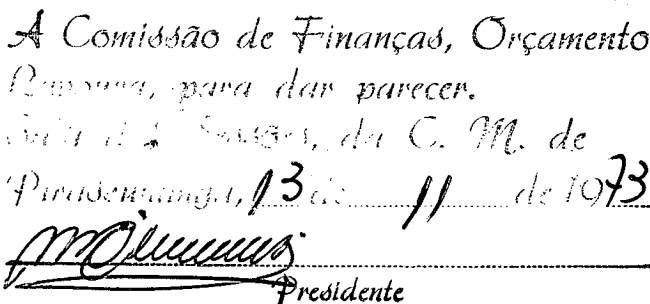 A Comissão de Finanças, Orçamento
para dar parecer.
Sala das Sessões, da C. M. de
Pirassununga, 13 de 11 de 1973
Presidente